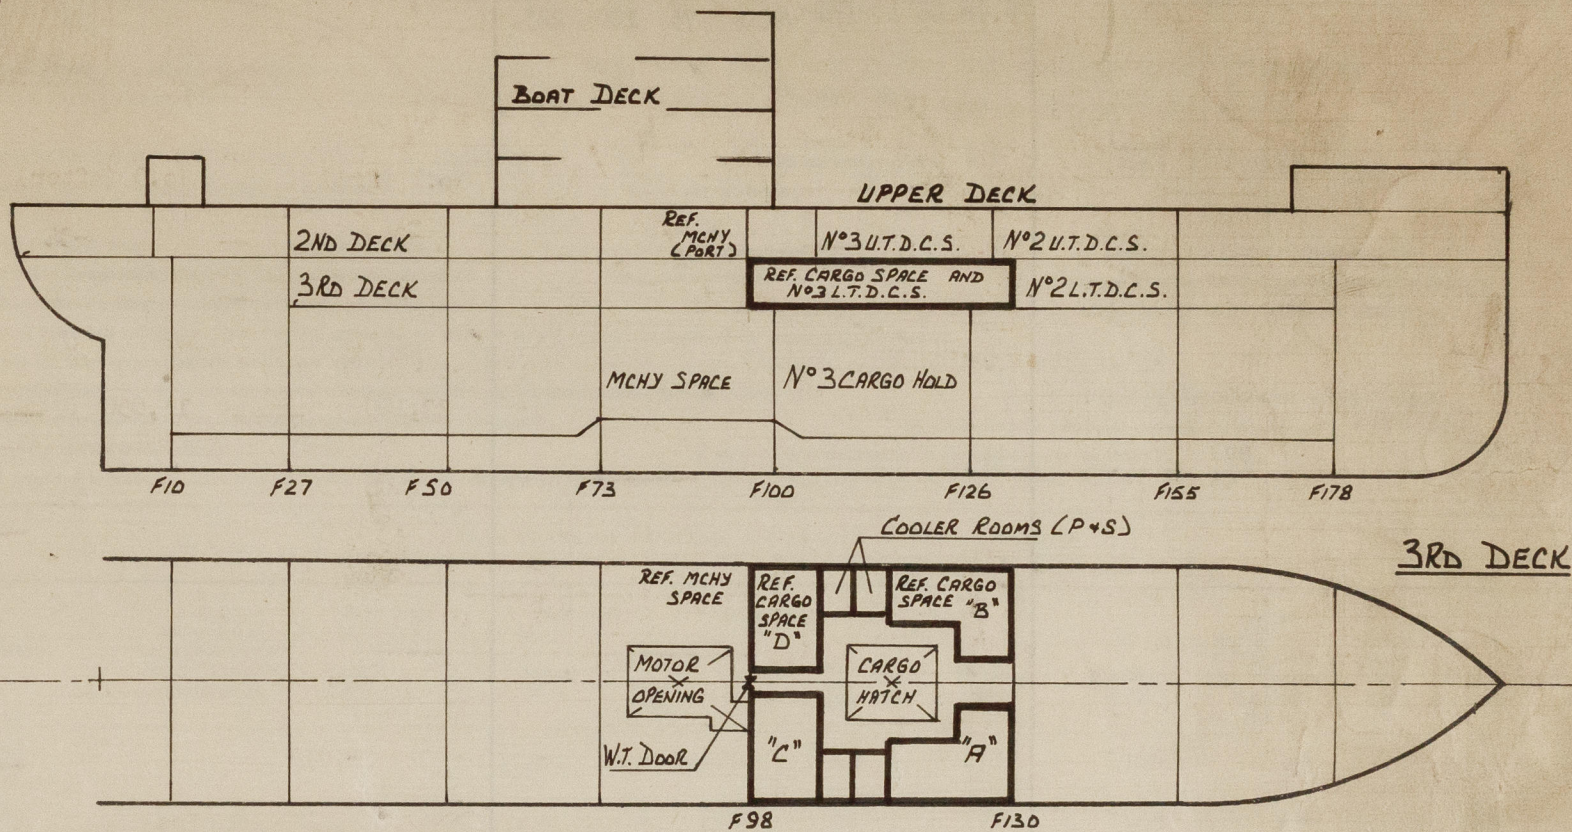 BOAT DECK
UPPER DECK
REF.
MCHY
(PORT)
2ND DECK
N°3 U.T.D.C.S.
N°2 U.T.D.C.S.
3RD DECK
REF. CARGO SPACE AND
N°3 L.T.D.C.S.
N°2 L.T.D.C.S.
MCHY SPACE
N°3 CARGO HOLD
F10
F27
F50
F73
F100
F126
F155
F178
COOLER ROOMS (P+S)
3RD DECK
REF. MCHY
SPACE
REF.
CARGO
SPACE
"D"
REF. CARGO
SPACE "B"
MOTOR
OPENING
CARGO
HATCH
W.T. DOOR
"C"
"A"
F98
F130